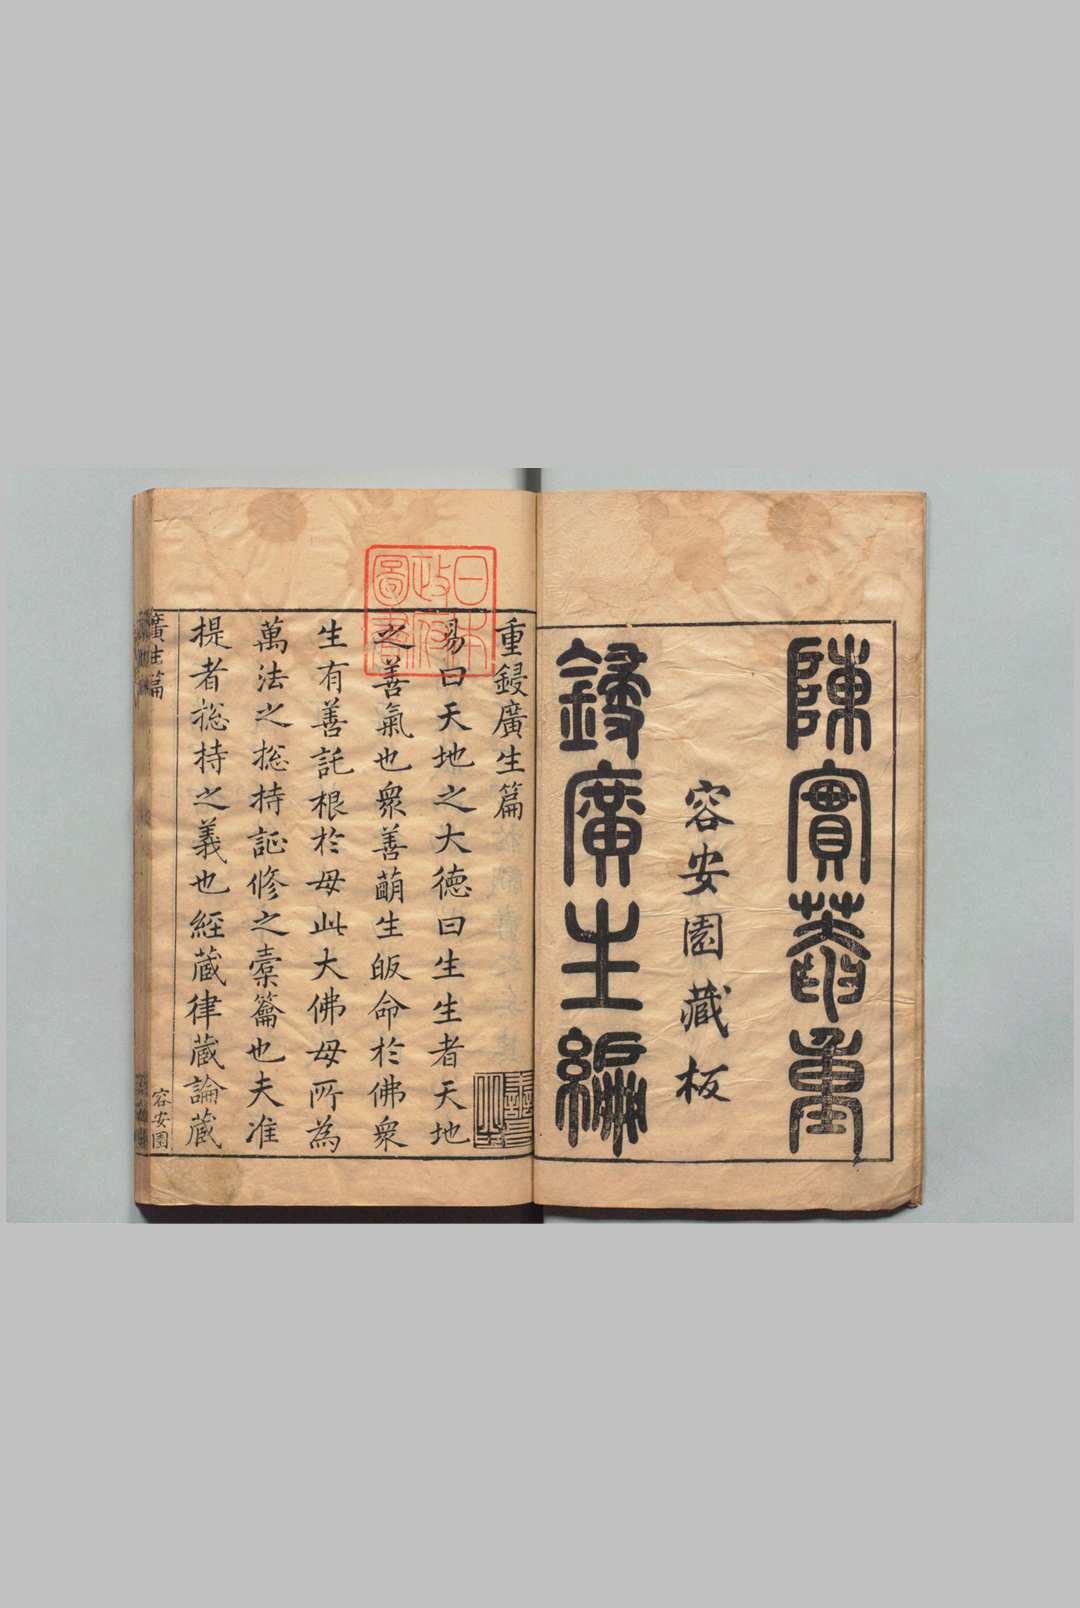 陳實菴重
容安園藏板
鋟廣生編
日本
政府
圖書
重鋟廣生篇
易曰天地之大德曰生生者天地
之善氣也衆善萠生皈命於佛衆
生有善託根於母此大佛母所為
萬法之捴持証修之橐籥也夫准
提者捴持之義也經藏律藏論藏
廣生篇
容安園